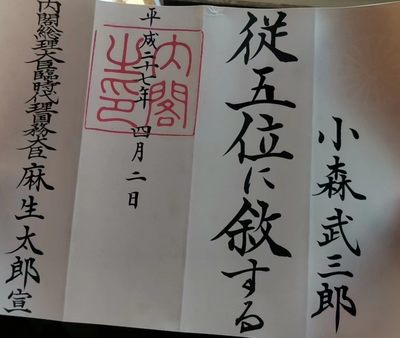 小森武三郎
従五位に敘する
平成二十七年四月二日
内閣之印
内閣総理大臣臨時代理国務大臣麻生太郎宣